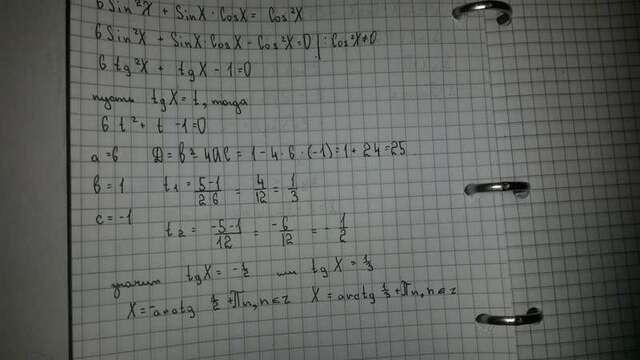 6 Sin²X + SinX · CosX = Cos²X
6 Sin²X + SinX · CosX - Cos²X = 0 | : Cos²X ≠ 0
6 tg²X + tgX - 1 = 0
пусть tgX = t, тогда
6 t² + t - 1 = 0
a = 6 D = b² - 4ac = 1 - 4 · 6 · (-1) = 1 + 24 = 25
b = 1 t₁ = (5-1)/(2·6) = 4/12 = 1/3
c = -1 t₂ = (-5-1)/12 = -6/12 = -1/2
значит tgX = -1/2 или tgX = 1/3
X = -arctg 1/2 + πn, n ∈ z X = arctg 1/3 + πn, n ∈ z